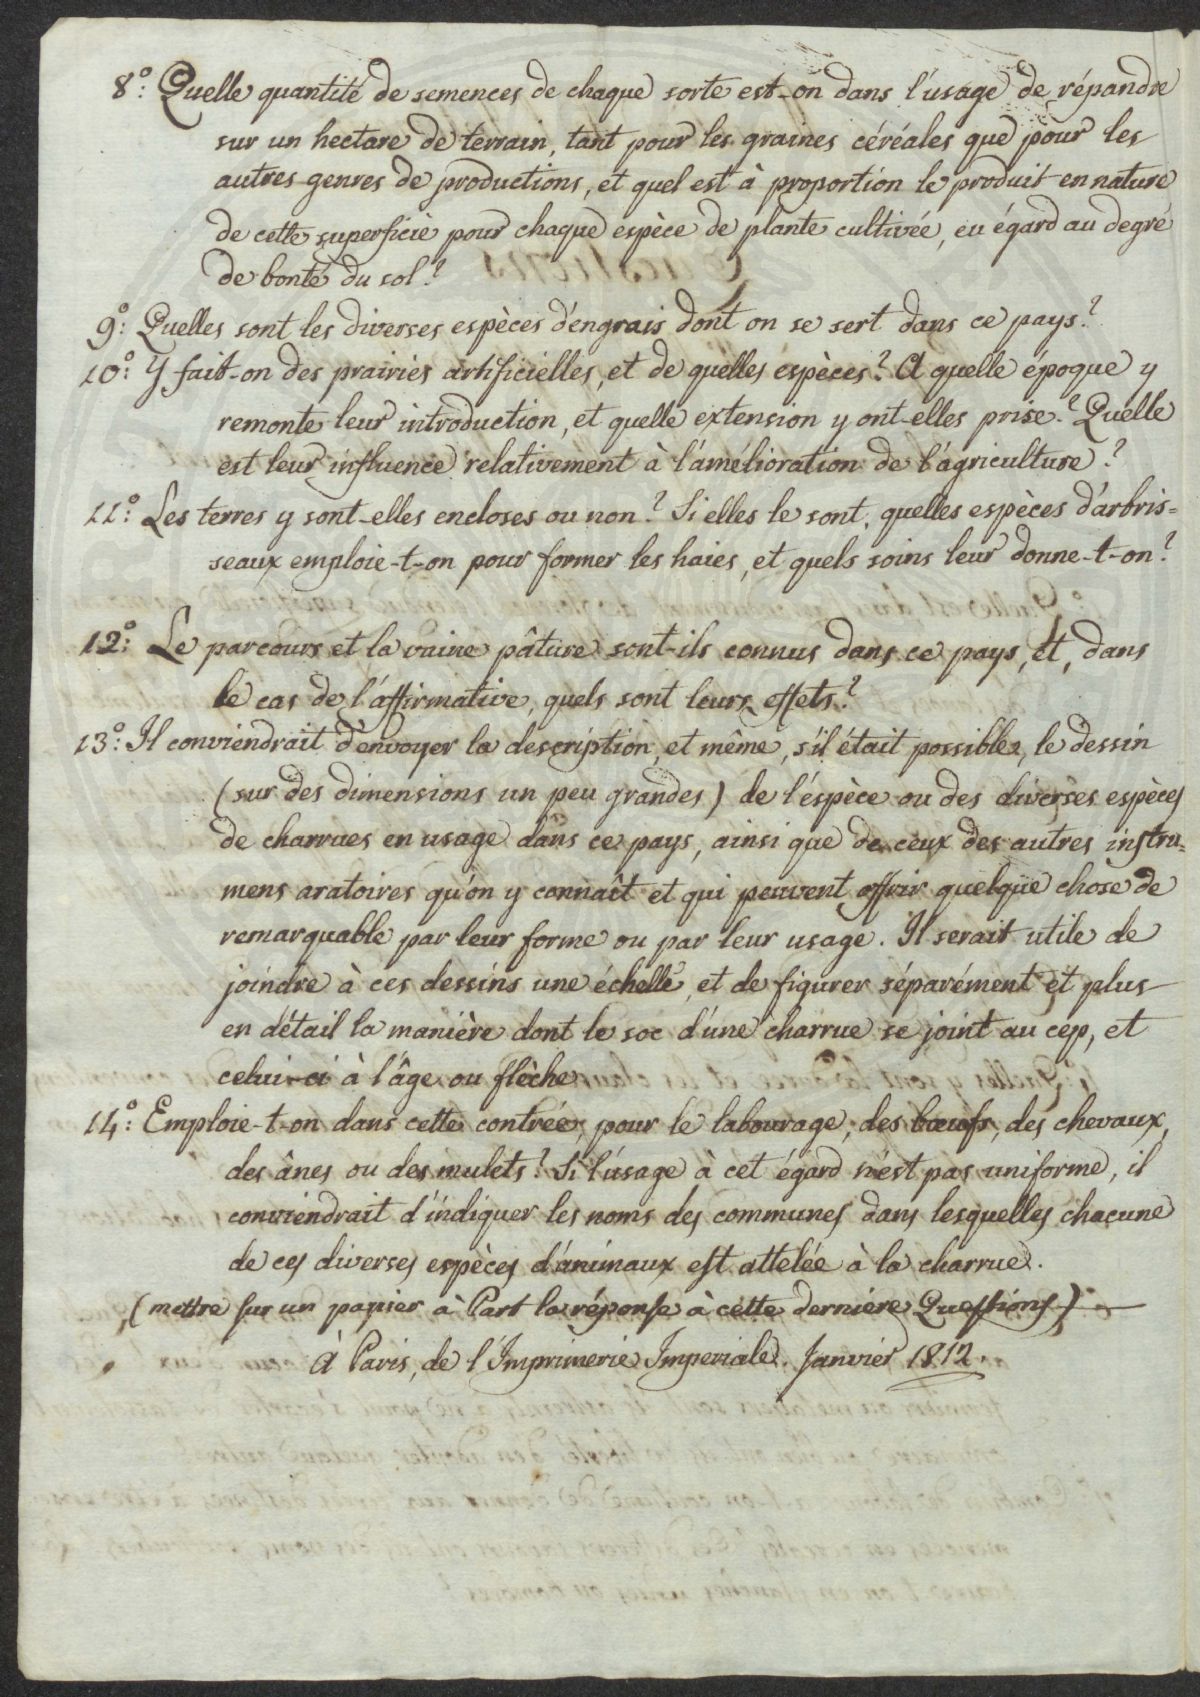 8.° Quelle quantité de semences de chaque sorte est-on dans l'usage de répandre
sur un hectare de terrain, tant pour les graines céréales que pour les
autres genres de productions, et quel est à proportion le produit en nature
de cette superficie pour chaque espèce de plante cultivée, eu égard au degré
de bonté du sol ?
9.° Quelles sont les diverses espèces d'engrais dont on se sert dans ce pays ?
10.° Y fait-on des prairies artificielles, et de quelles espèces ? A quelle époque y
remonte leur introduction, et quelle extension y ont-elles prise ? Quelle
est leur influence relativement à l'amélioration de l'agriculture ?
11.° Les terres y sont-elles encloses ou non ? Si elles le sont, quelles espèces d'arbris=
seaux emploie-t-on pour former les haies, et quels soins leur donne-t-on ?
12.° Le parcours et la vaine pâture sont-ils connus dans ce pays, et, dans
le cas de l'affirmative, quels sont leurs effets ?
13.° Il conviendrait d'envoyer la description, et même, s'il était possible, le dessin
(sur des dimensions un peu grandes) de l'espèce ou des diverses espèces
de charrues en usage dans ce pays, ainsi que de ceux des autres instru=
mens aratoires qu'on y connaît et qui peuvent offrir quelque chose de
remarquable par leur forme ou par leur usage. Il serait utile de
joindre à ces dessins une échelle, et de figurer séparément et plus
en détail la manière dont le soc d'une charrue se joint au cep, et
celui-ci à l'âge ou flèche.
14.° Emploie-t-on dans cette contrée, pour le labourage, des bœufs, des chevaux,
des ânes ou des mulets ? Si l'usage à cet égard n'est pas uniforme, il
conviendrait d'indiquer les noms des communes dans lesquelles chacune
de ces diverses espèces d'animaux est attelée à la charrue.
(mettre sur un papier à Part la réponse à cette derniere Questions)
À Paris, de l'Imprimerie Imperiale. Janvier 1812.